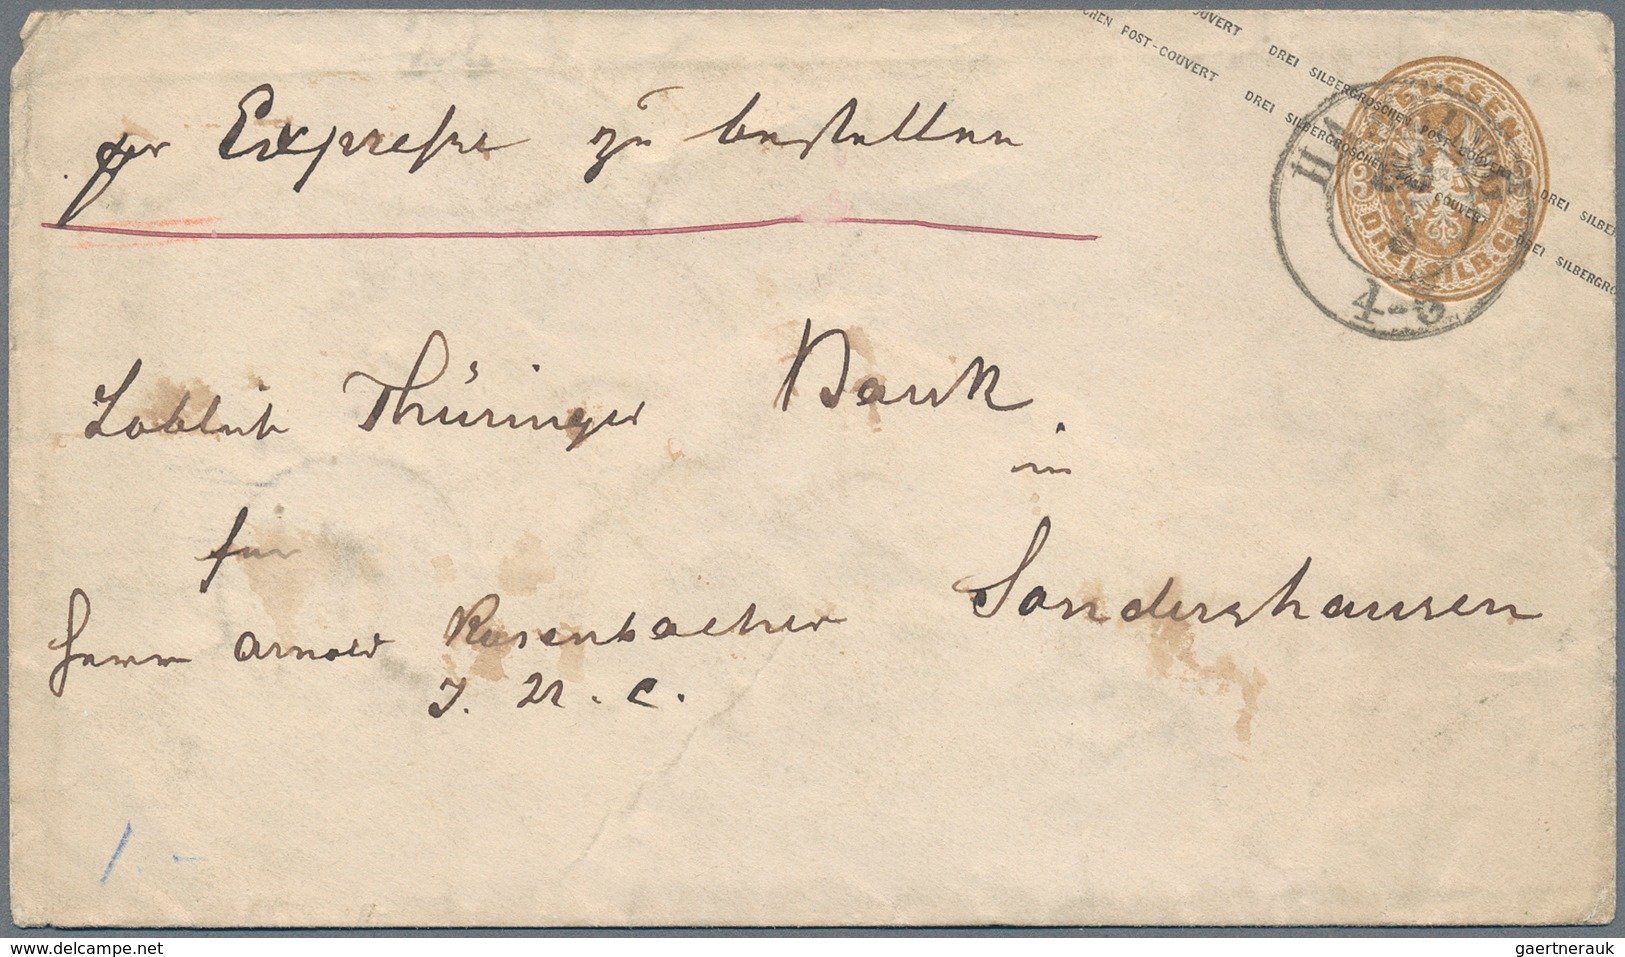 CHEN POST-COUVERT DREI SILBERGROSCHEN POST-COUVERT DREI SILBERGRO
OUVERT DREI SILBERGROSCHEN POST-COUVERT DREI SILBER
PREUSSEN
DREI SILB. GR.
4-5
per Expresse zu bestellen
Löblich Thüringer Bank
in
für Sondershausen
Herrn Arnold Rosenbacher
J. N. C.
1 -
www.delcampe.net
gaertnerauk